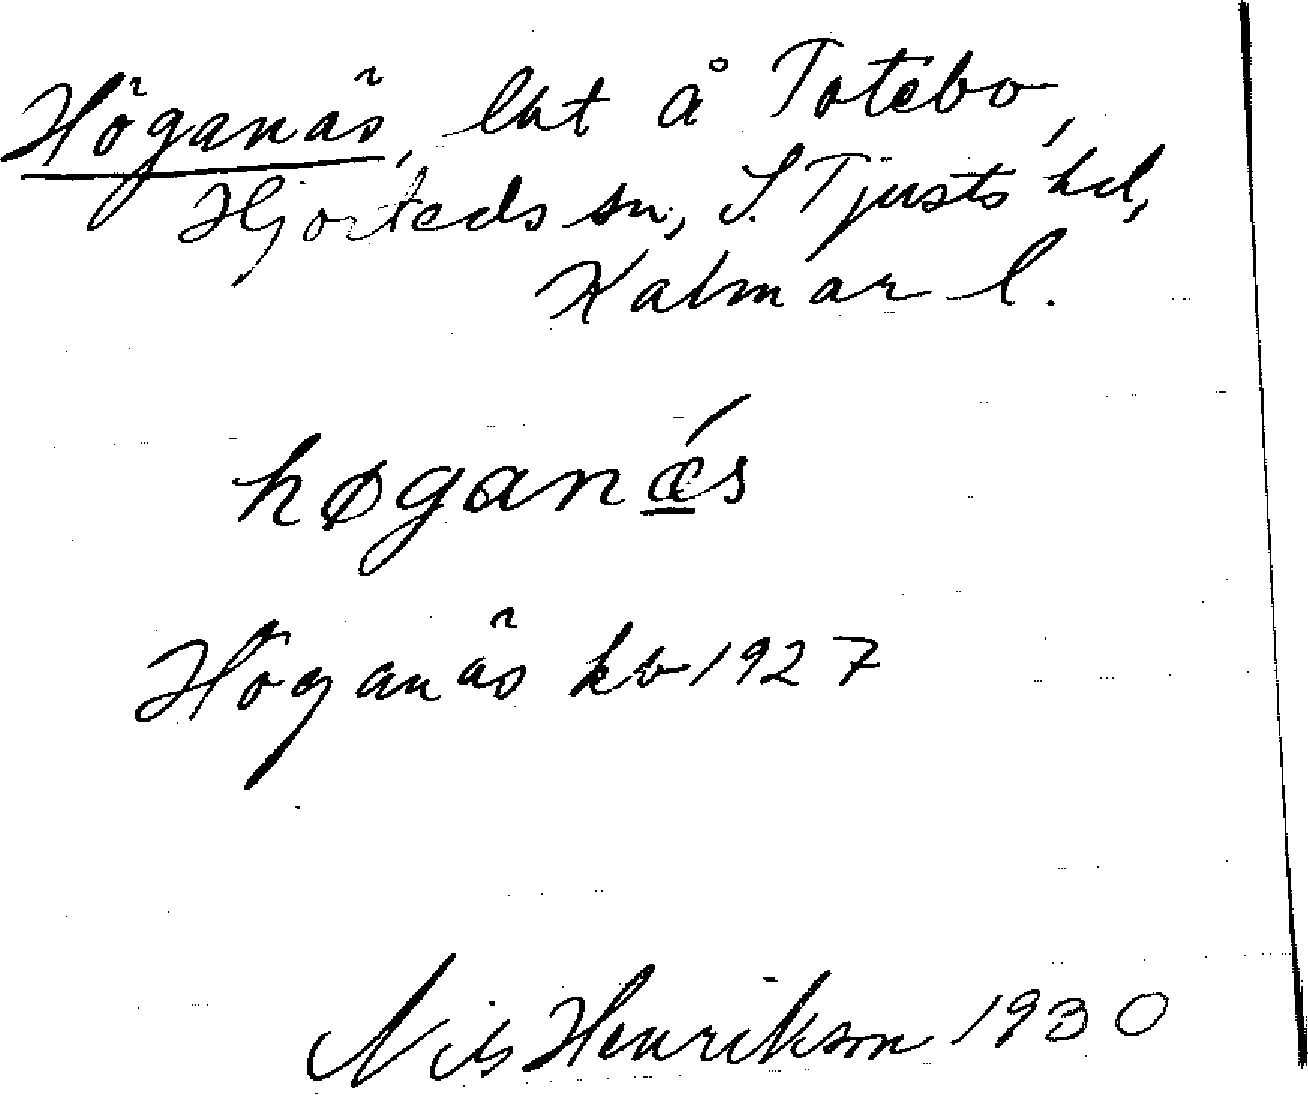 Höganäs, lht å Totebo,
Hjorteds sn, S. Tjusts hd,
Kalmar l.
høganǽs
Höganäs kb 1927
Nils Henrikson 1930